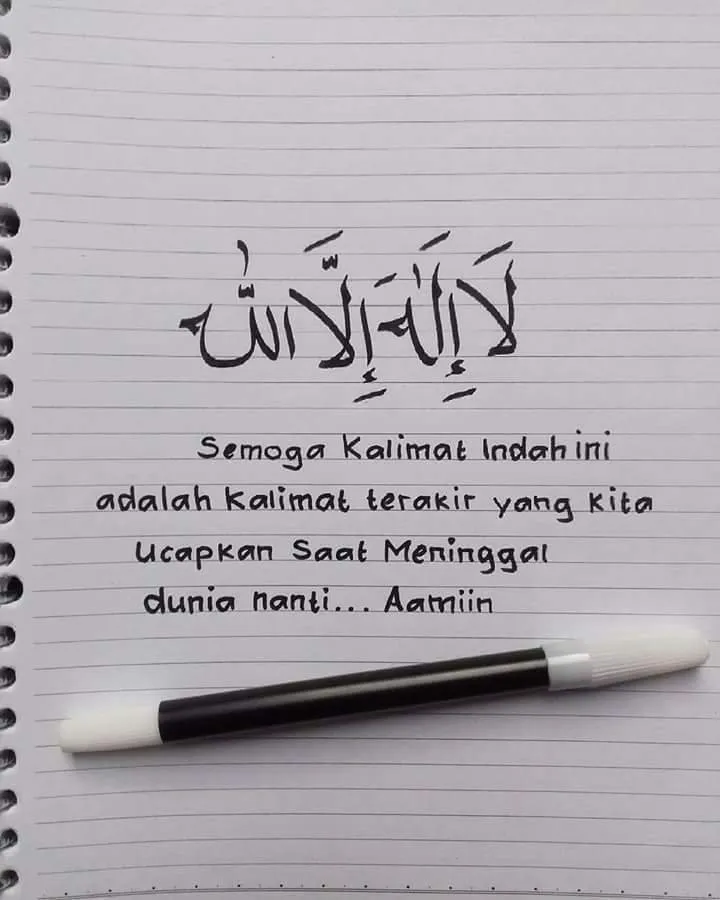 لَا إِلٰهَ إِلَّا اللّٰهُ
Semoga Kalimat Indah ini
adalah Kalimat terakir yang Kita
Ucapkan Saat Meninggal
dunia nanti... Aamiin